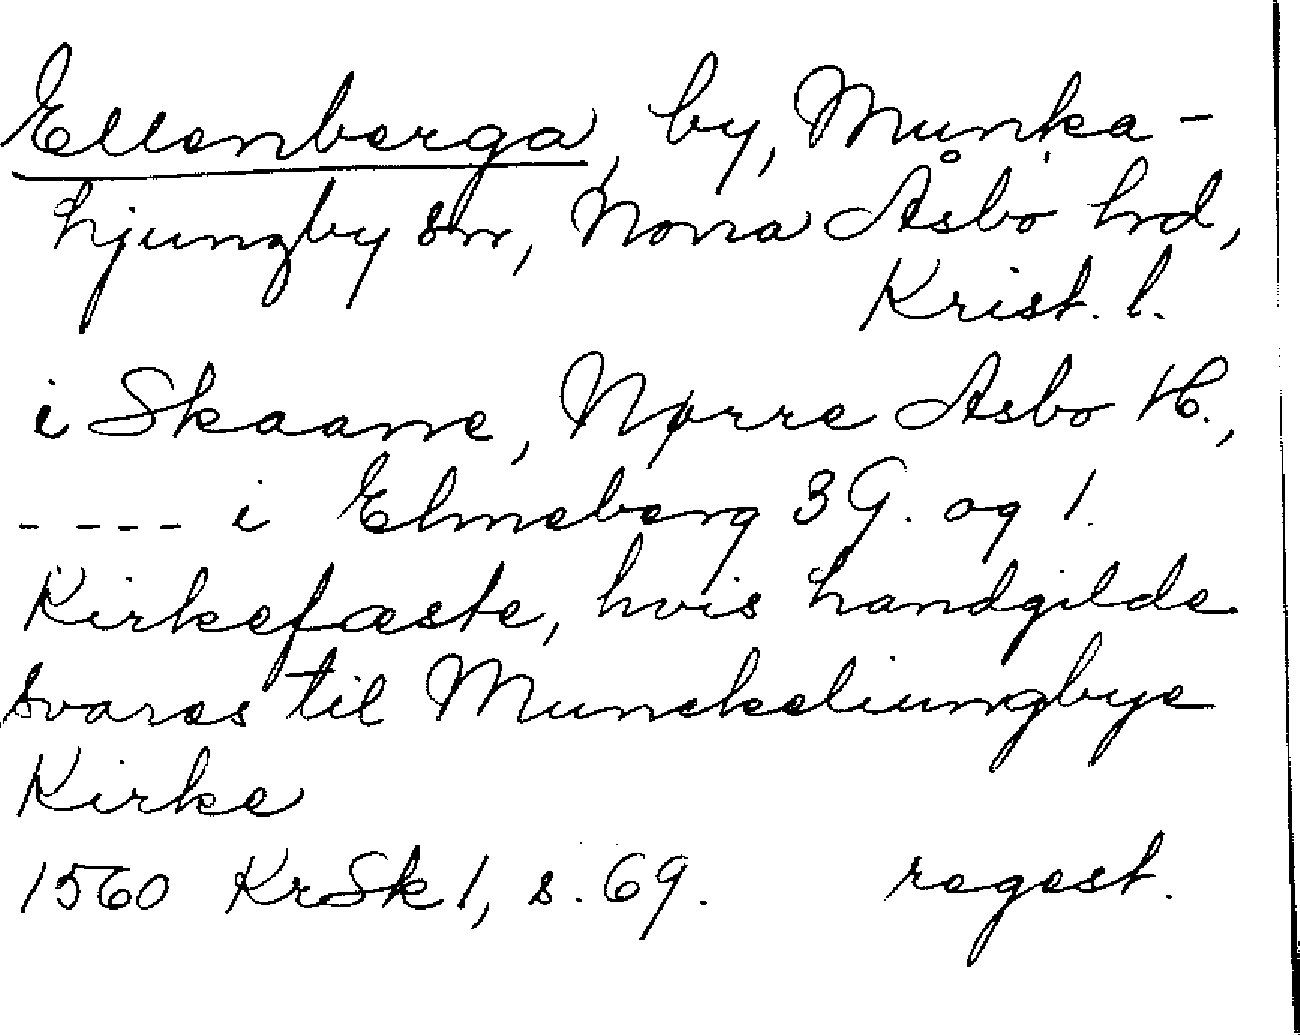 Ellenberga, by, Munka-
hjungby sn, Norra Åsbo hd,
Krist. l.
i Skaane, Nørre Asbo H.,
---- i Elmeberg 3 G. og 1.
Kirkefæste, hvis handgilde
svares til Munckeliungbye
Kirke
1560 KrSk 1, s. 69. regest.